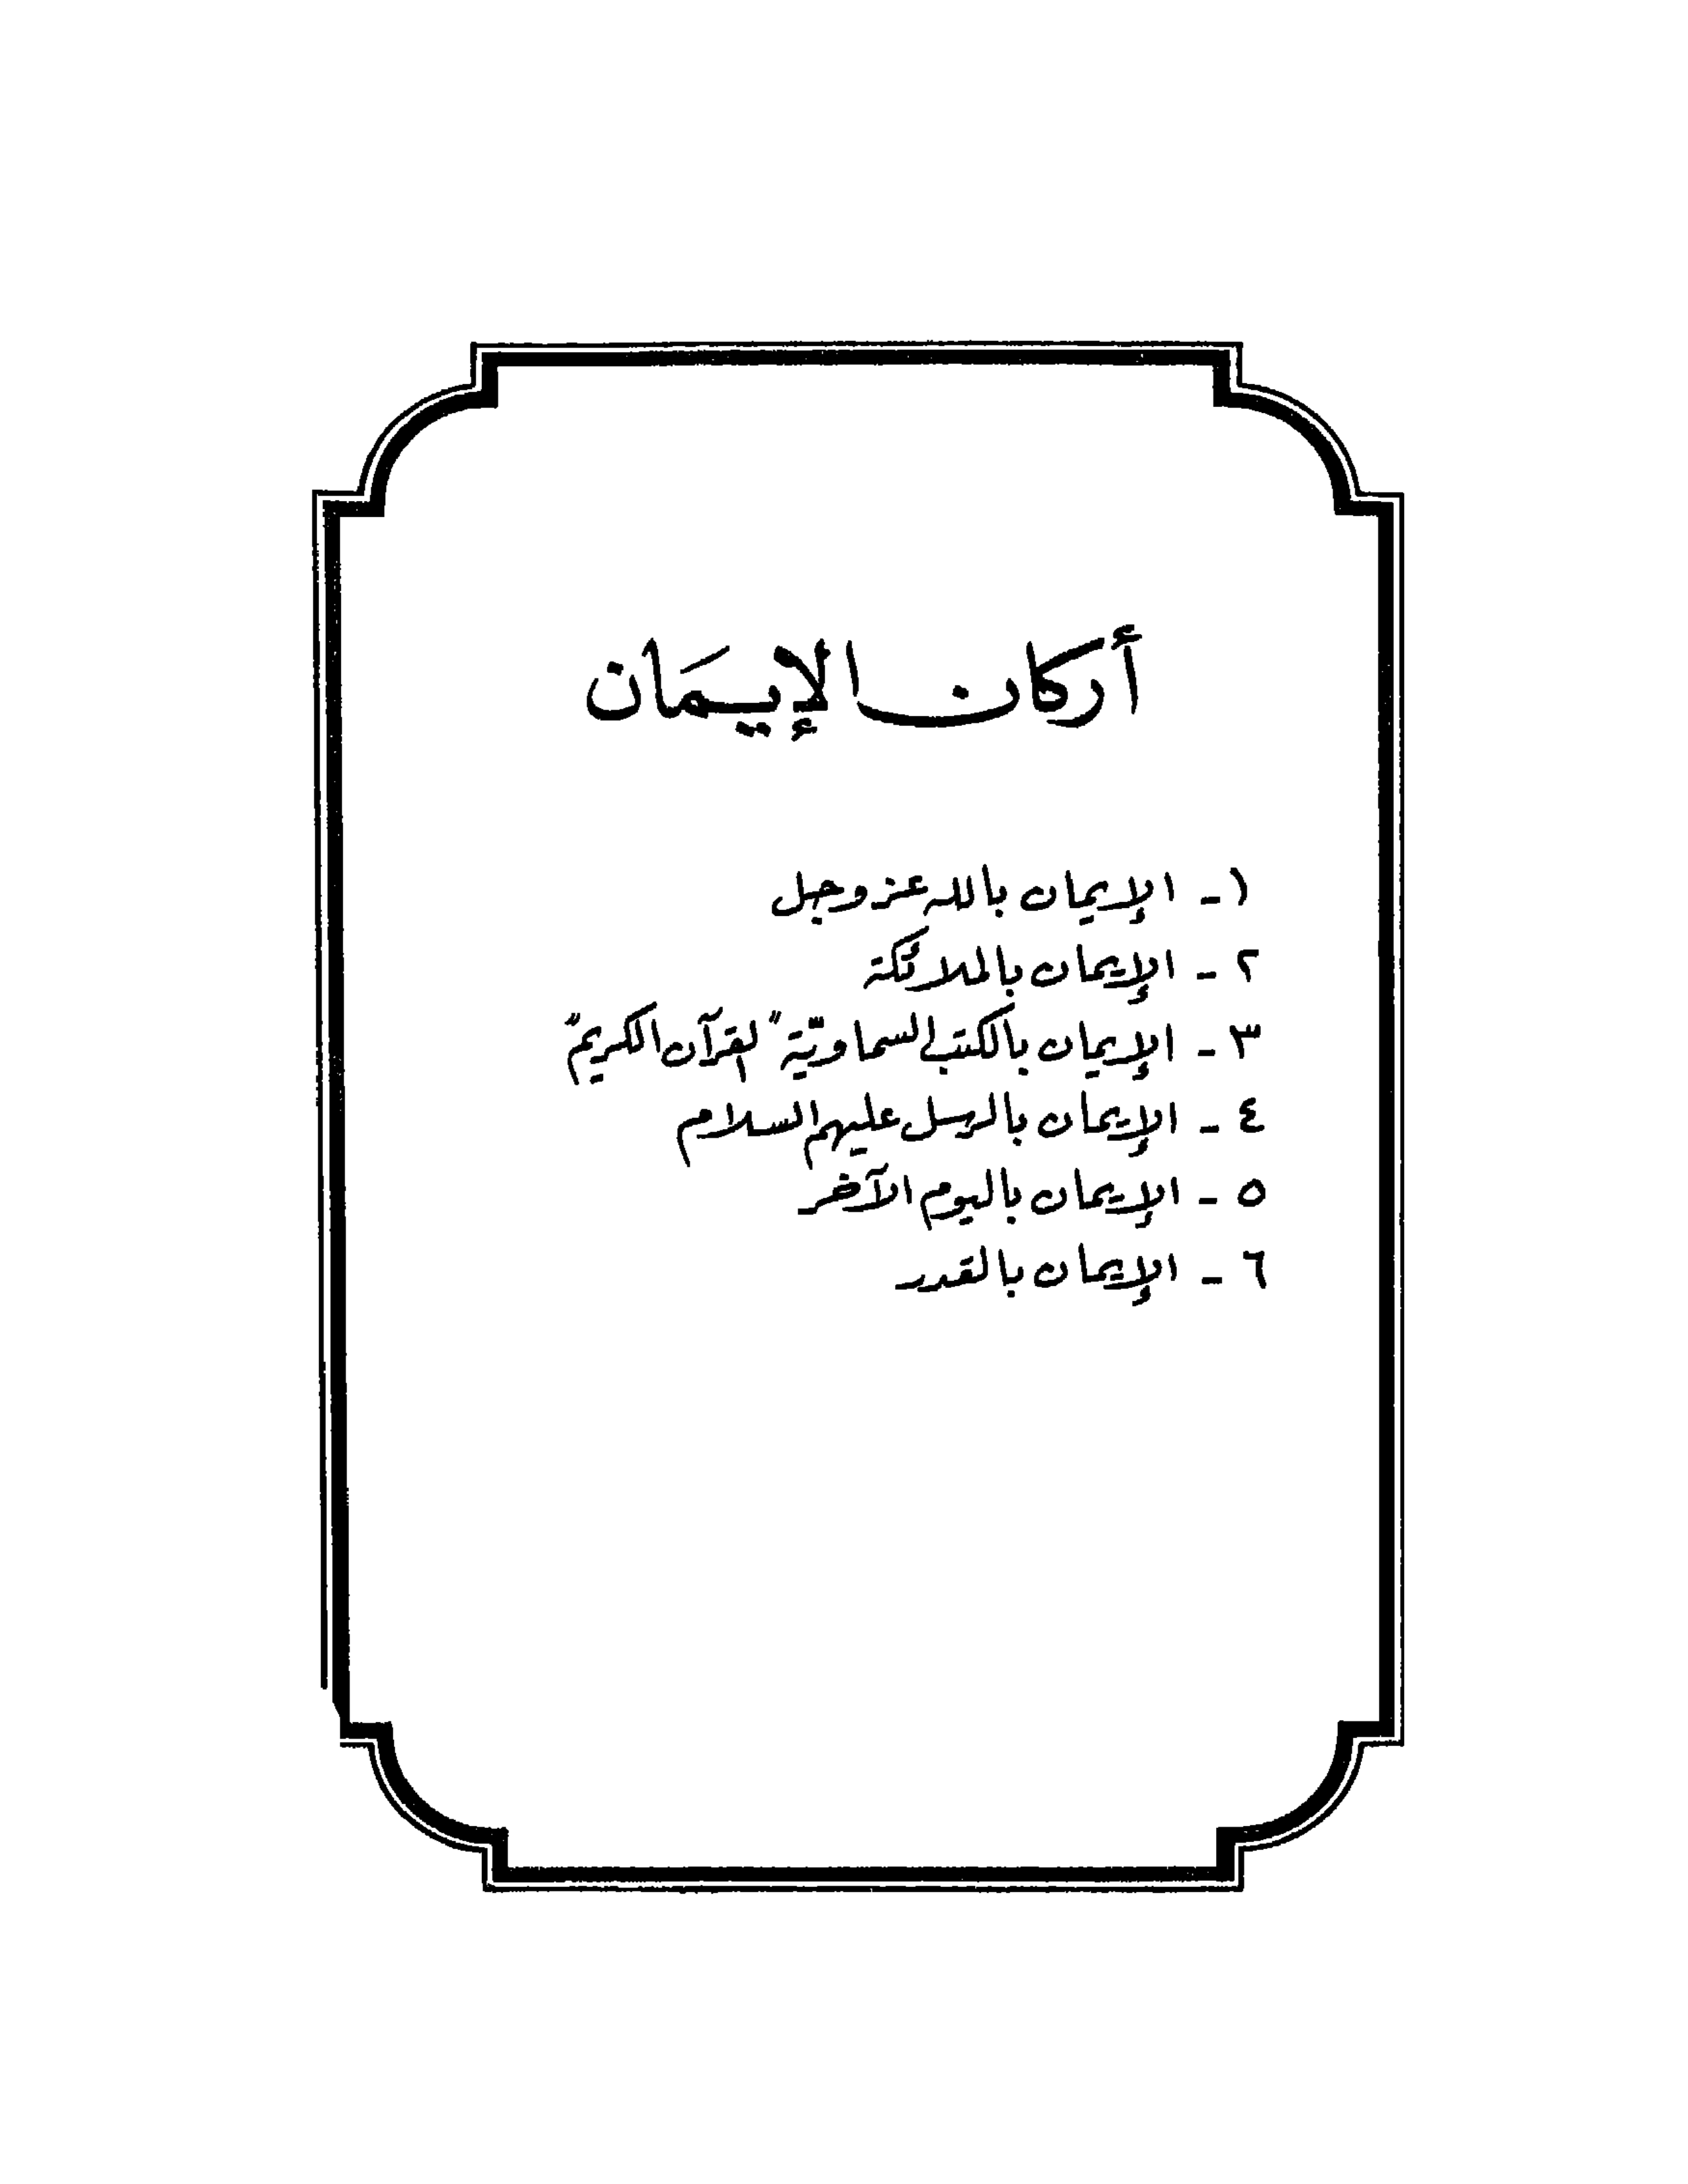 أركان الإيمَان
١ - الإيمان بالله عز وجل
٢ - الإيمان بالملائكة
٣ - الإيمان بالكتب السماويّة "القرآن الكريم"
٤ - الإيمان بالرسل عليهم السلام
٥ - الإيمان باليوم الآخر
٦ - الإيمان بالقدر